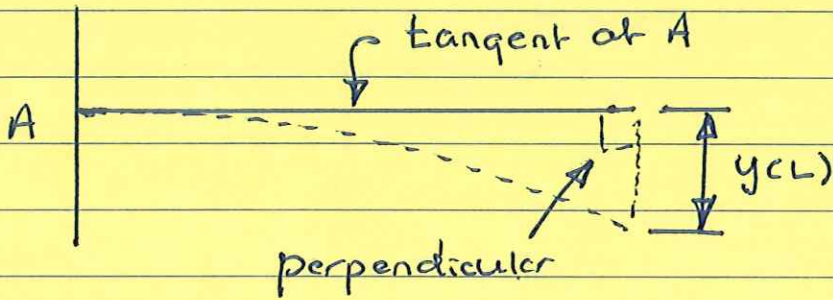 tangent at A
A
y(L)
perpendicular